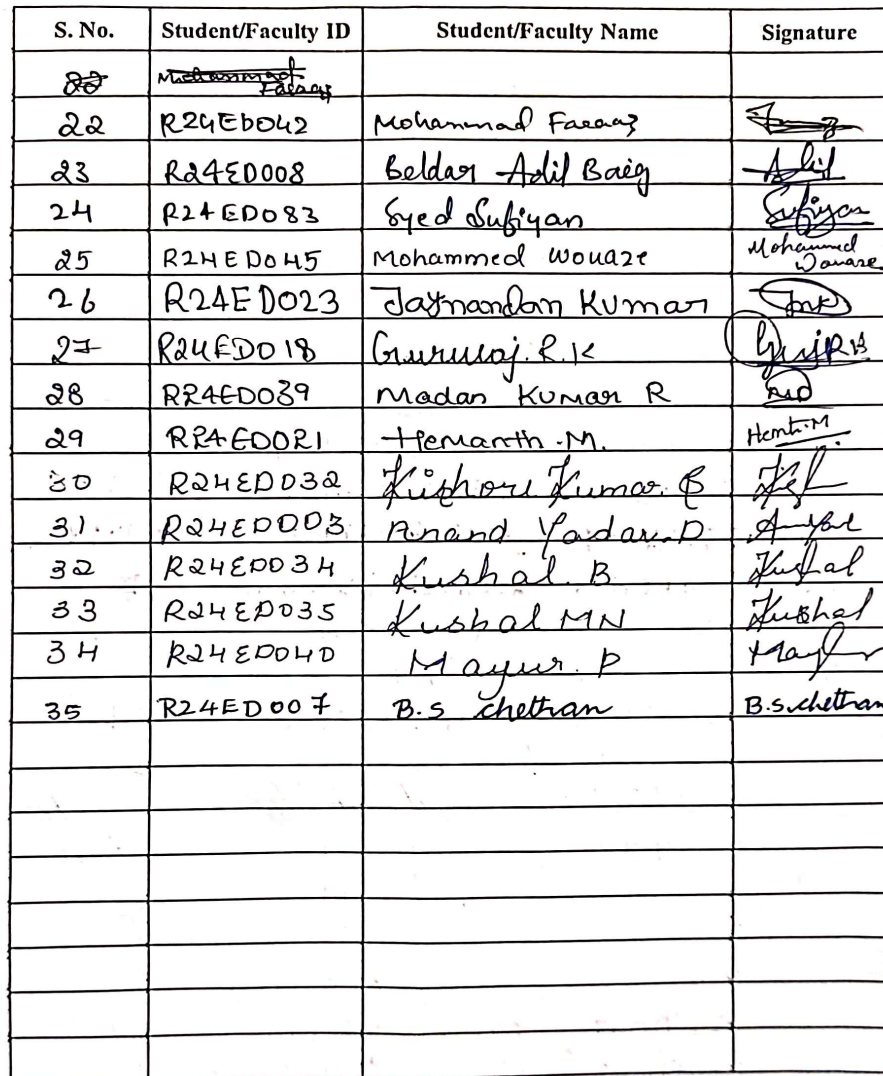 S. No. Student/Faculty ID Student/Faculty Name Signature
22 Mohammad Faraaz
22 R24ED042 Mohammad Faraaz
23 R24ED008 Beldar Adil Baig Adil
24 R24ED083 Syed Sufiyan Sufiyan
25 R24ED045 Mohammed Wouaze Mohammed Wouaze
26 R24ED023 Jaynandan Kumar
27 R24ED018 Gururaj. R. K
28 R24ED039 Madan Kumar R
29 R24ED021 Hemanth .M. Hemth.M
30 R24ED032 Kishore Kumar. B
31. R24ED003 Anand Yadav. D
32 R24ED034 Kushal. B Kushal
33 R24ED035 Kushal MN Kushal
34 R24ED040 Mayur. P
35 R24ED007 B.S chethan B.S.chethan